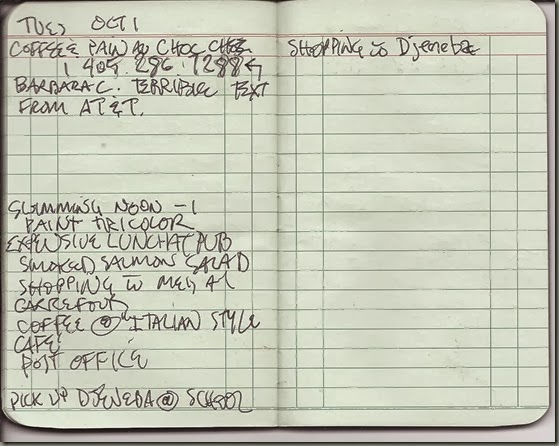 TUES OCT 1
COFFEE & PAIN AU CHOC CHEZ
1 405 286 7288
BARBARA C. TERRIBLE TEXT
FROM AT&T.
SWIMMING NOON -1
PAINT TRICOLOR
EXPENSIVE LUNCH AT PUB
SMOKED SALMON SALAD
SHOPPING W MEG AT
CARREFOUR
COFFEE @ "ITALIAN STYLE
CAFE
POST OFFICE
PICK UP DJENEBA @ SCHOOL
SHOPPING W Djeneba